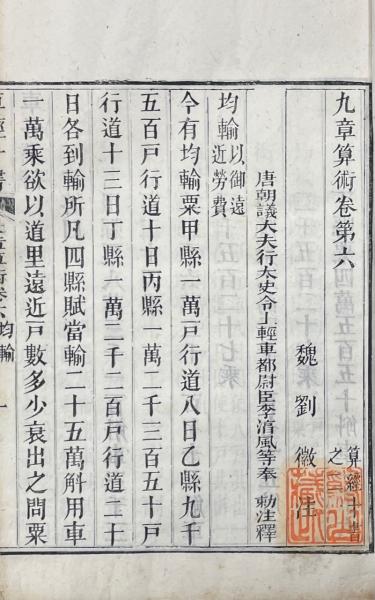 九章算術卷第六
算經十書
之
魏劉徽注
唐朝議大夫行太史令上輕車都尉臣李淳風等奉 勅注釋
均輸以御遠
近勞費
今有均輸粟甲縣一萬戸行道八日乙縣九千
五百戸行道十日丙縣一萬二千三百五十戸
行道十三日丁縣一萬二千二百戸行道二十
日各到輸所凡四縣賦當輸二十五萬斛用車
一萬乘欲以道里遠近戸數多少衰出之問粟
均輸
一